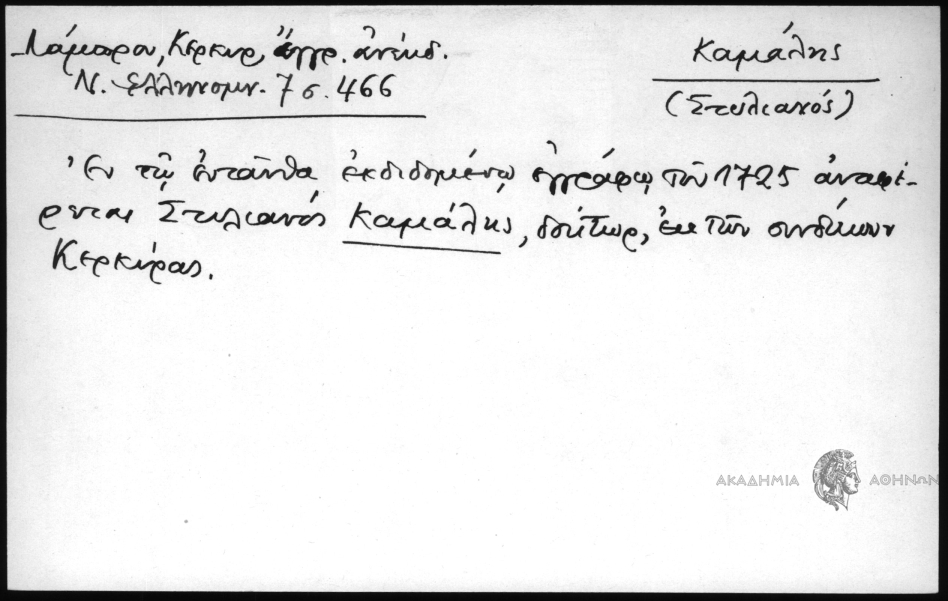 Λάμπρου, Κερκυρ, ἔγγρ. ἀνέκδ.
Ν. Ἑλληνομν. 7 σ. 466
Καμάλης
(Στυλιανός)
Ἐν τῷ ἐνταῦθα ἐκδιδομένῳ ἐγγράφῳ τοῦ 1725 ἀναφέ-
ρεται Στυλιανός Καμάλης, δόττωρ, ἐκ τῶν συνδίκων
Κερκύρας.
ΑΚΑΔΗΜΙΑ ΑΘΗΝΩΝ